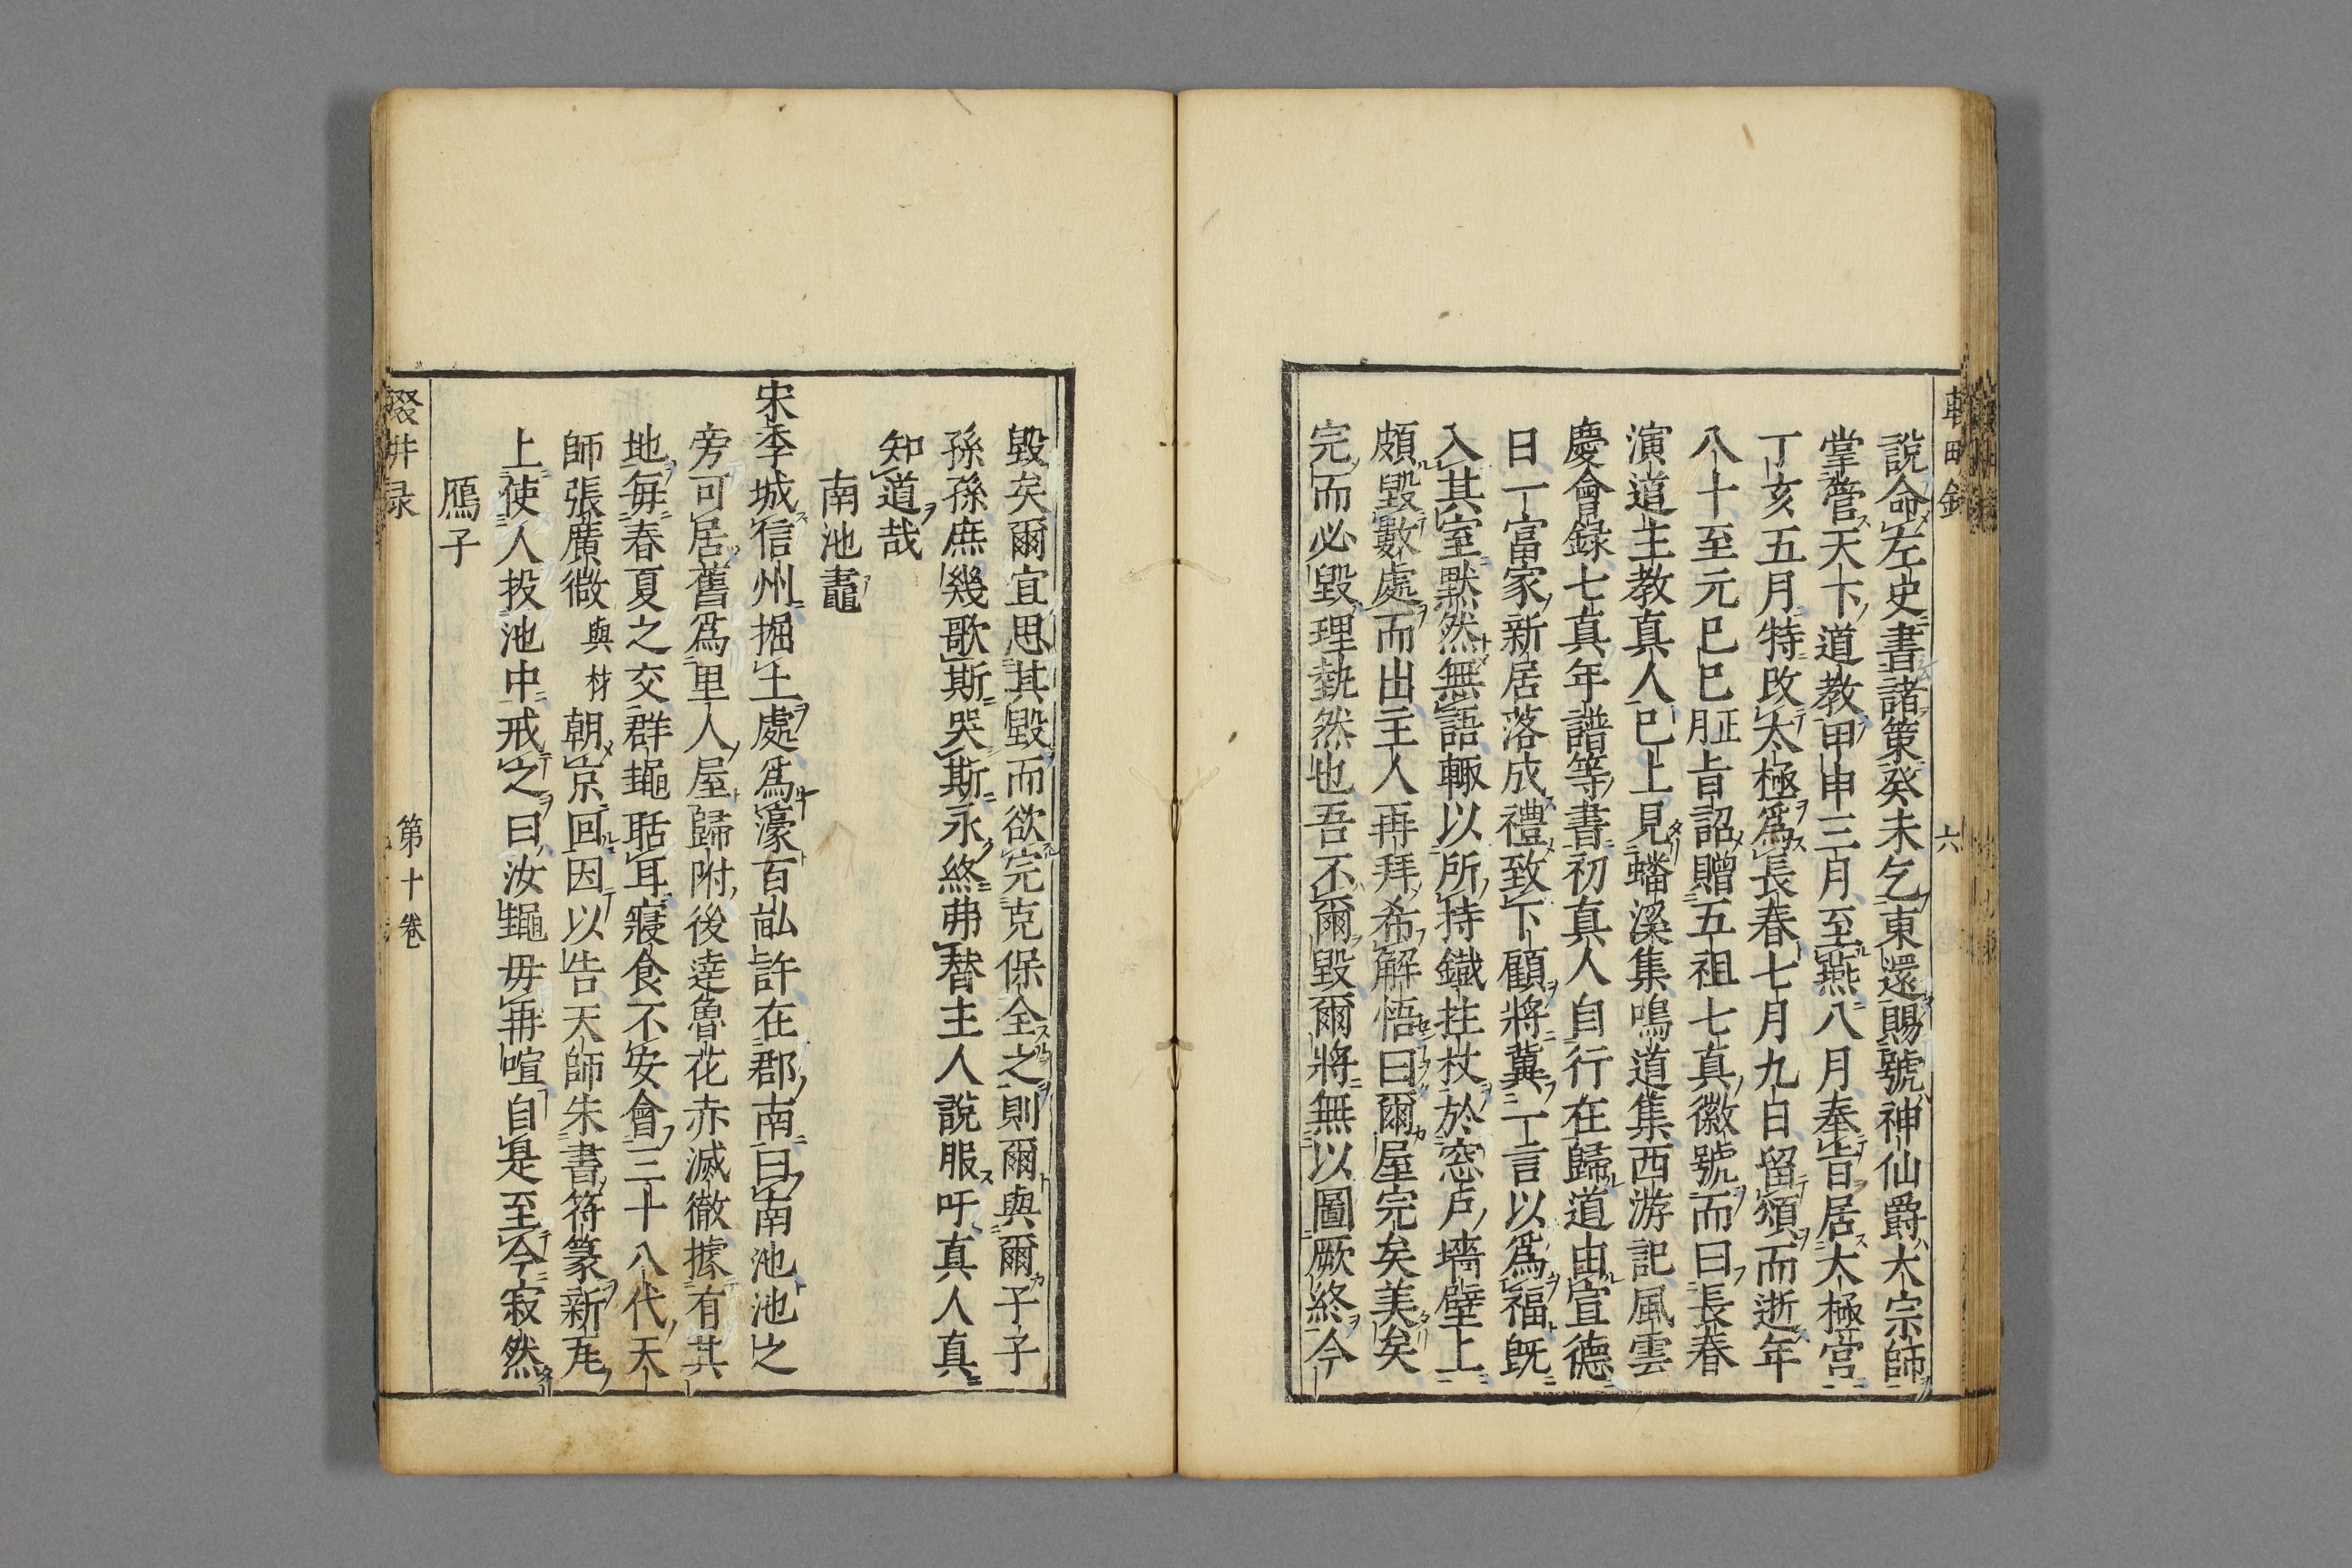 說命左史書諸策癸未乞東還賜號神仙爵大宗師
掌管天下道教甲申三月至燕八月奉旨居太極宮
丁亥五月特改太極爲長春七月九日留頌而逝年
八十至元己巳正月旨詔贈五祖七真徽號而曰長春
演道主教真人已上見蟠溪集鳴道集西游記風雲
慶會錄七真年譜等書初真人自行在歸道由宣德
日一富家新居落成禮致下顧將冀一言以爲福既
入其室默然無語輙以所持鐵拄杖於窓戶墻壁上
頗毀數處而出主人再拜希解悟曰爾屋完矣美矣
完而必毀理勢然也吾不爾毀爾將無以圖厥終今
毀矣爾宜思其毀而欲完克保全之則爾與爾子子
孫孫庶幾歌斯哭斯永終弗替主人說服吁真人真
知道哉
南池鼃
宋季城信州掘土處爲濠百畆許在郡南曰南池池之
旁可居舊爲里人屋歸附後達魯花赤滅徹據有其
地每春夏之交群鼃聒耳寢食不安會三十八代天
師張廣微與材朝京回因以告天師朱書符篆新瓦
上使人投池中戒之曰汝鼃毋再喧自是至今寂然
鴈子
輟畊录
第十卷
六